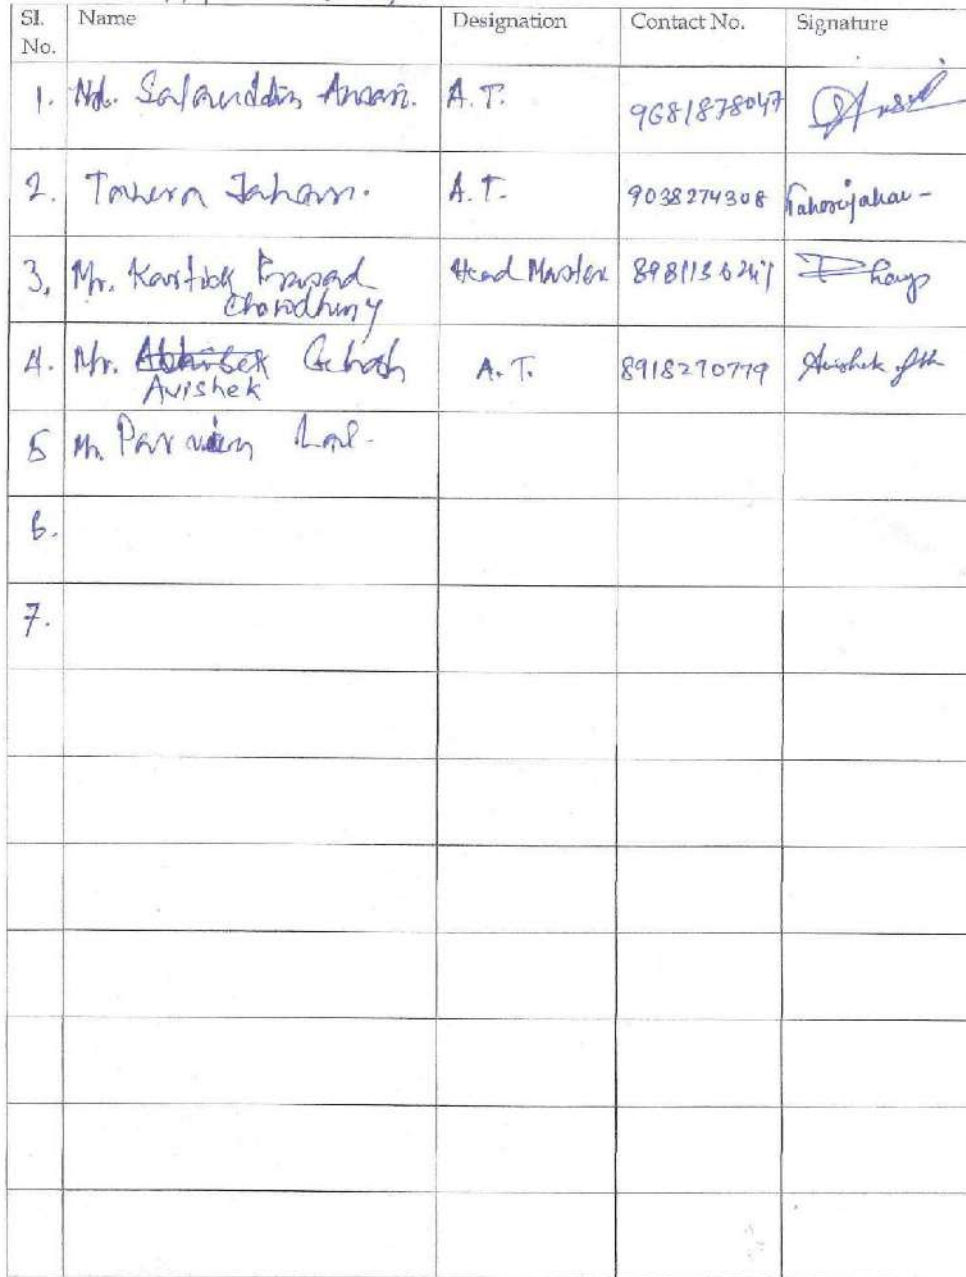 Sl. No. Name Designation Contact No. Signature
1. Md. Safauddin Ansari. A.T. 9681878047
2. Tahera Jahan. A.T. 9038274308 Taherajahan-
3. Mr. Kartick Prasad Chowdhury Head Master
4. Mr. Abhishek Ghosh A.T. 8918270779 Avishek
Avishek
5 Mr. Parveen Lal.
6.
7.